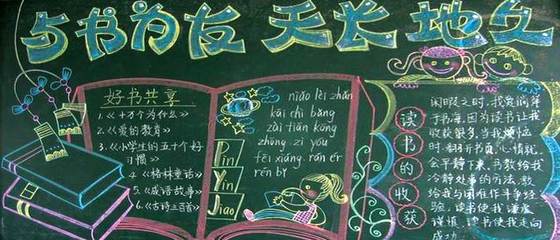 与书为友 天长地久
好书共享
1.《十万个为什么》
2.《爱的教育》
3.《小学生的五十个好
习惯》
4.《格林童话》
5.《成语故事》
6.《古诗三百首》
Pin
Yin
Jiao
niǎo lèi zhǎn
kāi chì bǎng
zài tiān kōng
zhōng zì yóu
fēi xiáng rán ér
rén
读书的收获
闲暇之时,我爱徜徉
于书海,因为读书让我
收获很多,当我烦恼
时,翻开书页,心情就
会平静下来,书教给我
冷静处事的方法,教
给我与困难作斗争经
验,读书使我谦虚
谨慎,读书使我走向
成功